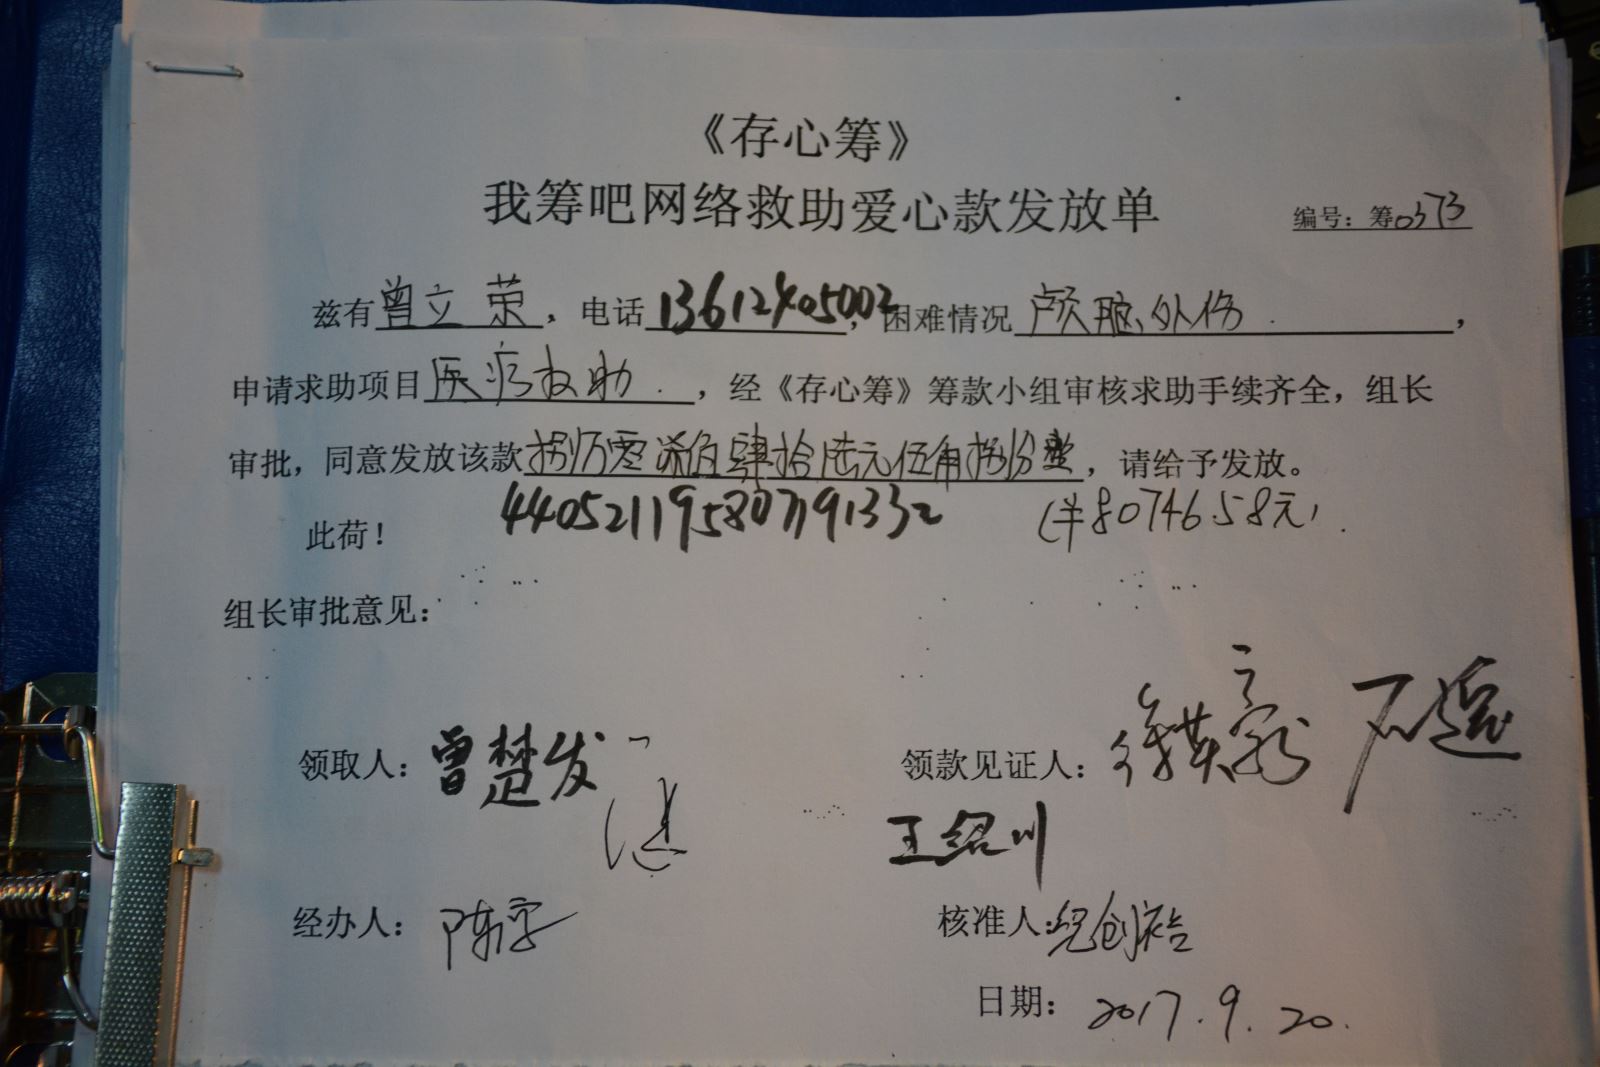 《存心筹》
我筹吧网络救助爱心款发放单
编号：筹0373
兹有曾立荣，电话13612405002，困难情况颅脑外伤，
申请求助项目医疗救助，经《存心筹》筹款小组审核求助手续齐全，组长
审批，同意发放该款捌万零柒佰肆拾陆元伍角捌分整，请给予发放。
此荷！ 440521195807191332 （¥80746.58元）
组长审批意见：
领取人：曾楚发 领款见证人：
王绍川
经办人：陈 核准人：
日期：2017.9.20.